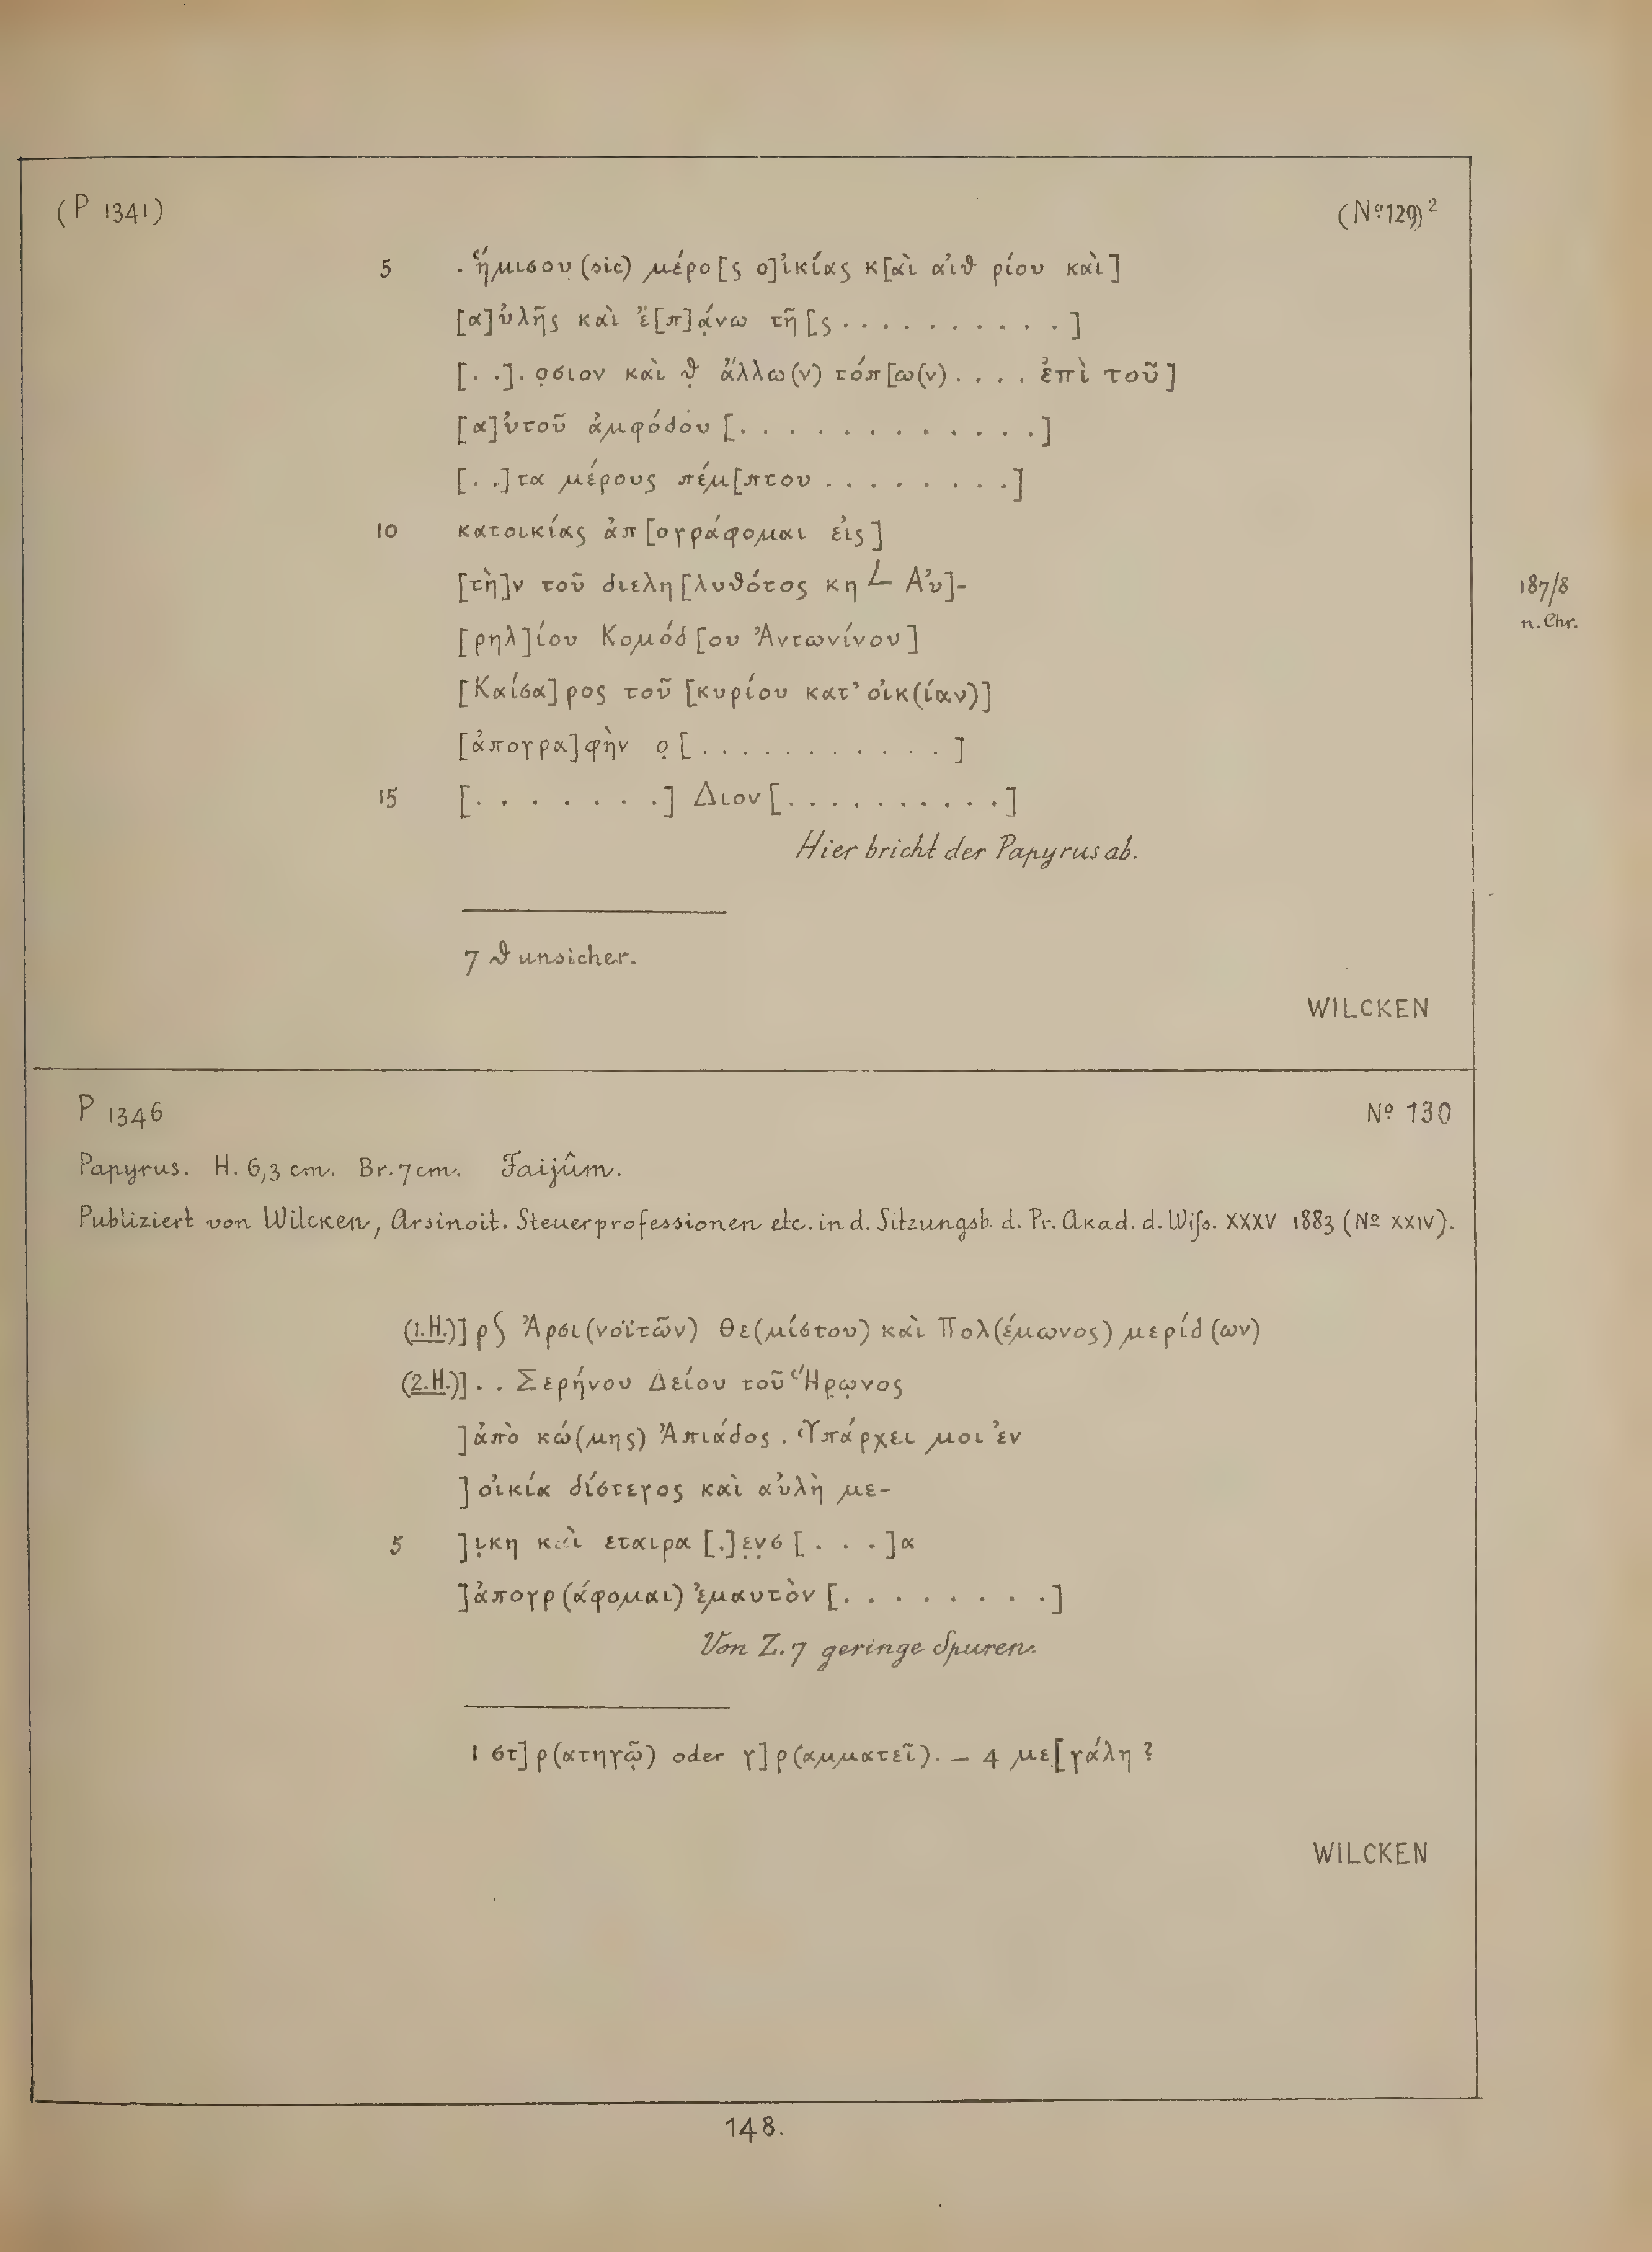 (P 1341) (Nº 129)²
5 . ἥμισου (sic) μέρο[ς ο]ἰκίας κ[αὶ αἰθρίου καὶ]
[α]ὐλῆς καὶ ἐ[π]ά̣νω τῆ[ς . . . . . . . . . .]
[. .]. ο̣σιον καὶ θ̣ ἄλλω(ν) τόπ[ω(ν) . . . . ἐπὶ τοῦ]
[α]ὐτοῦ ἀμφόδου [. . . . . . . . . . . . .]
[. .]τα μέρους πέμ[πτου . . . . . . . .]
10 κατοικίας ἀπ[ογράφομαι εἰς]
[τὴ]ν τοῦ διελη[λυθότος κη L Αὐ]-
[ρηλ]ίου Κομόδ[ου Ἀντωνίνου]
187/8
n. Chr.
[Καίσα]ρος τοῦ [κυρίου κατ' οἰκ(ίαν)]
[ἀπογρα]φὴν ο̣[. . . . . . . . . . .]
15 [. . . . . . .] Διον[. . . . . . . . . .]
Hier bricht der Papyrus ab.
7 θ unsicher.
WILCKEN
P 1346 Nº 130
Papyrus. H. 6,3 cm. Br. 7 cm. Faijûm.
Publiziert von Wilcken, Arsinoit. Steuerprofessionen etc. in d. Sitzungsb. d. Pr. Akad. d. Wiſs. XXXV 1883 (Nº XXIV).
(1.H.)] ρ∫ Ἀρσι(νοϊτῶν) Θε(μίστου) καὶ Πολ(έμωνος) μερίδ(ων)
(2.H.)] . . Σερήνου Δείου τοῦ Ἥρ̣ω̣νος
] ἀπὸ κώ(μης) Ἀπιάδος. Ὑπάρχει μοι ἐν
] οἰκία δίστεγος καὶ αὐλὴ με-
5 ]ι̣κη καὶ εταιρα [.]ε̣ν̣σ[. . .]α
] ἀπογρ(άφομαι) ἐμαυτὸν [. . . . . . . .]
Von Z. 7 geringe Spuren.
1 στ]ρ(ατηγῷ) oder γ]ρ(αμματεῖ). — 4 με[γάλη?
WILCKEN
148.